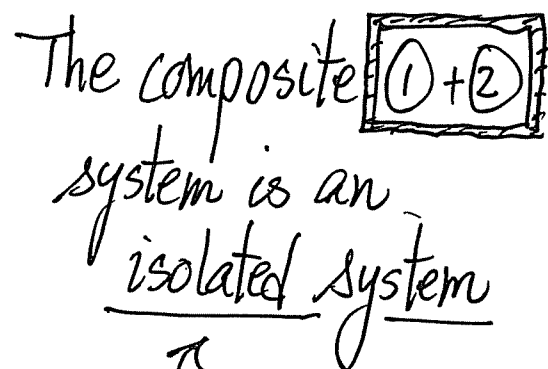 The composite ① + ②
system is an
isolated system